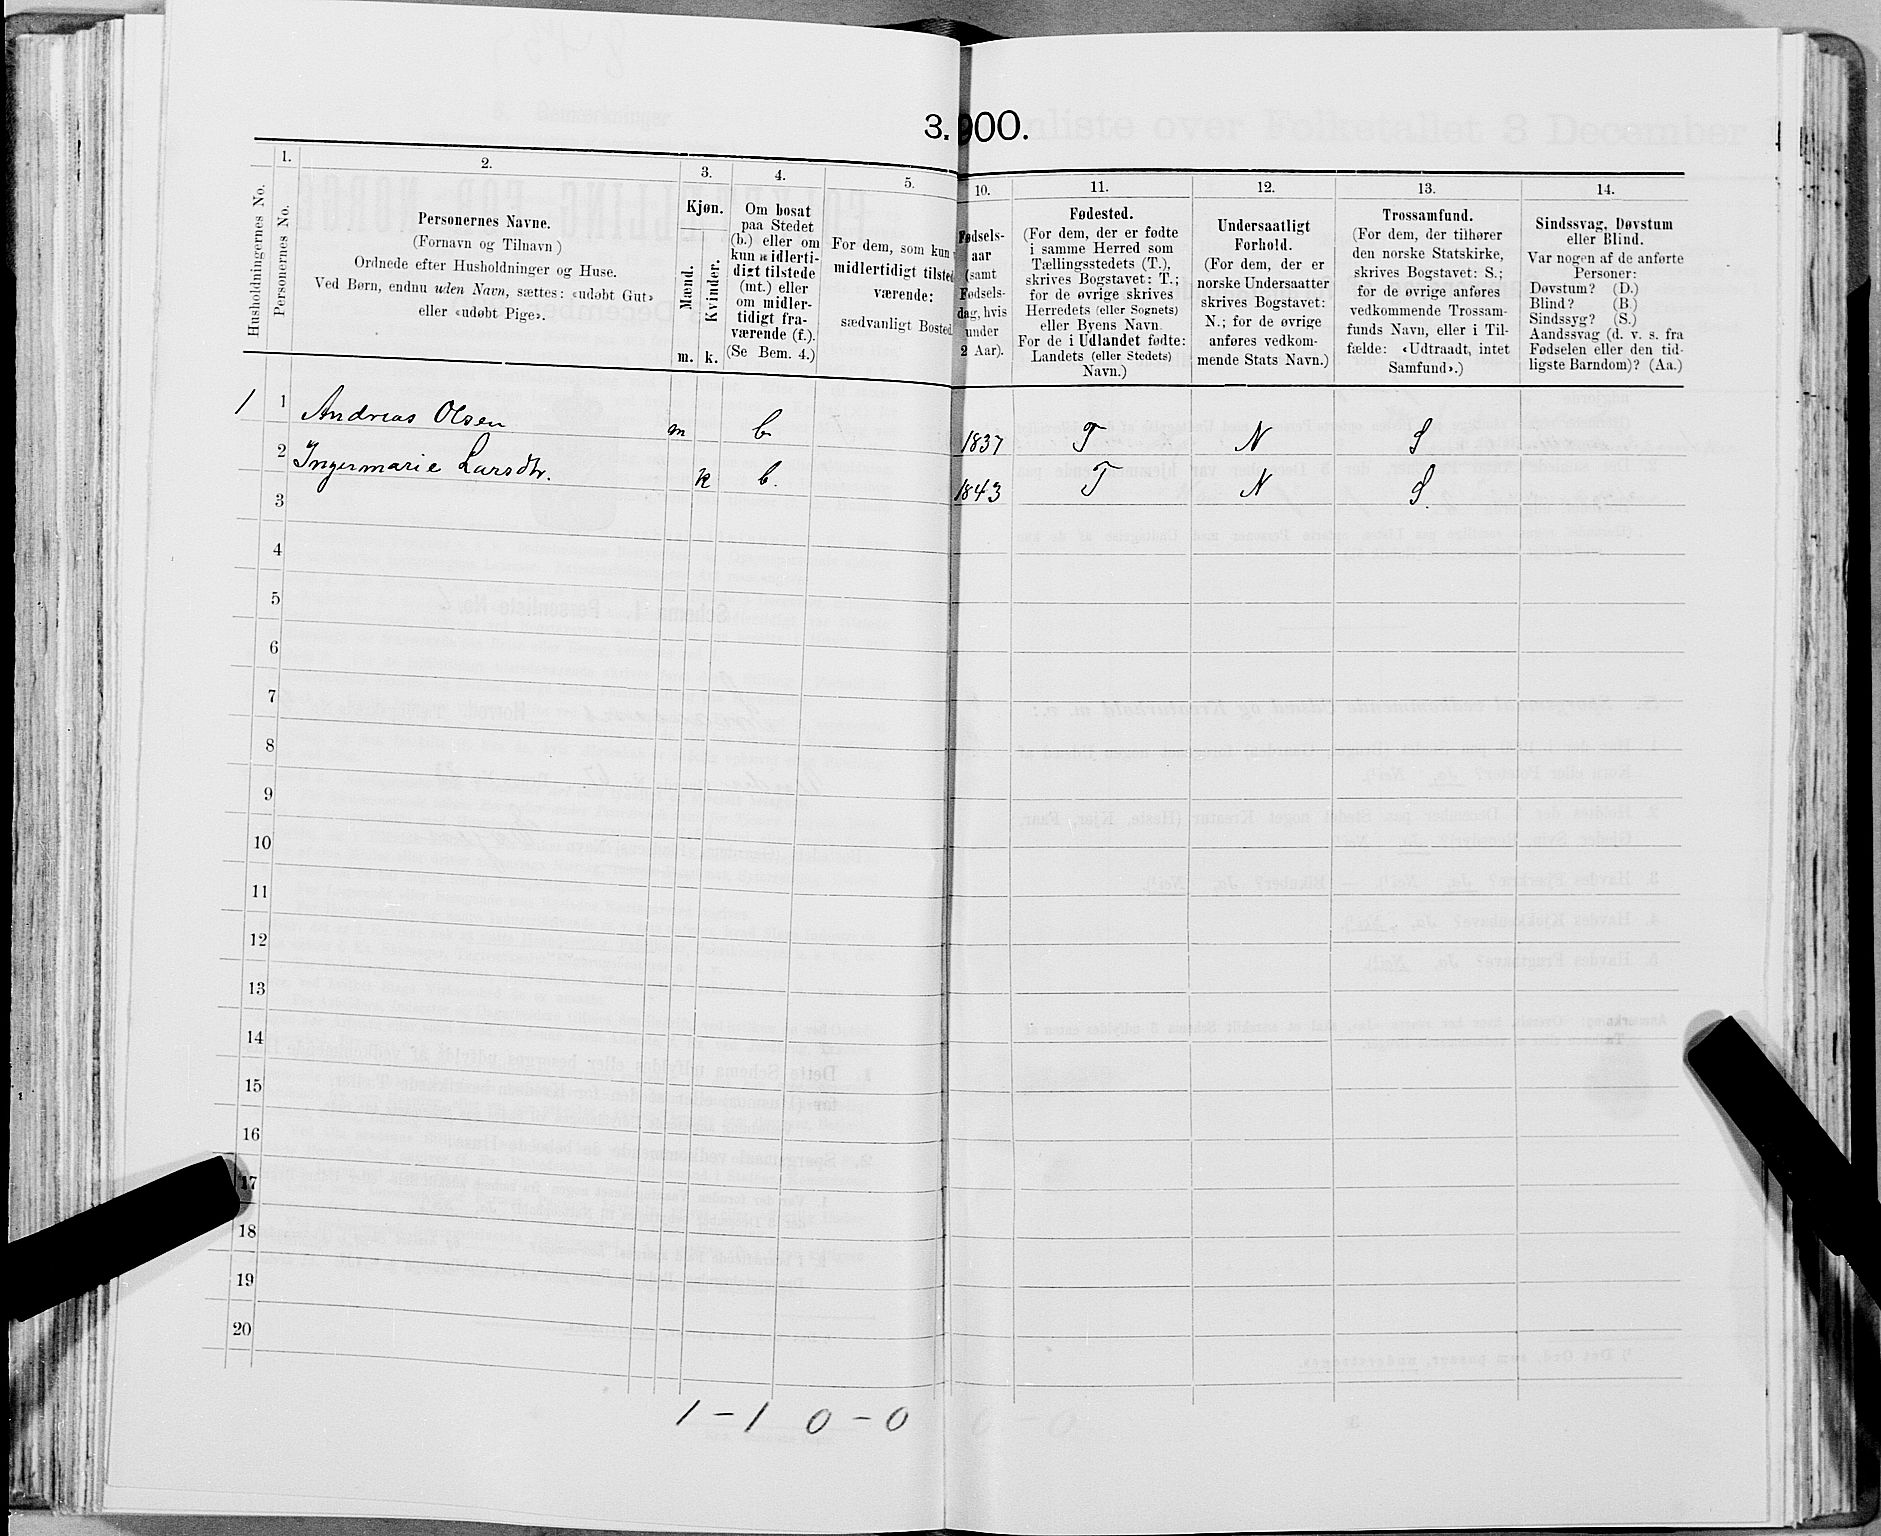 3. 900.
1.
2.
3.
4.
5.
10.
11.
12.
13.
14.
Husholdningernes No.
Personernes No.
Personernes Navne.
(Fornavn og Tilnavn)
Ordnede efter Husholdninger og Huse.
Ved Børn, endnu uden Navn, sættes: «udøbt Gut»
eller «udøbt Pige».
Kjøn.
Mænd.
Kvinder.
m. k.
Om bosat
paa Stedet
(b.) eller om
kun midlerti-
digt tilstede
(mt.) eller
om midler-
tidigt fra-
værende (f.).
(Se Bem. 4.)
For dem, som kun
midlertidigt tilsted
værende:
sædvanligt Bosted
Fødsels-
aar
(samt
Fødsels-
dag, hvis
under
2 Aar).
Fødested.
(For dem, der er fødte
i samme Herred som
Tællingsstedets (T.),
skrives Bogstavet: T.;
for de øvrige skrives
Herredets (eller Sognets)
eller Byens Navn.
For de i Udlandet fødte:
Landets (eller Stedets)
Navn.)
Undersaatligt
Forhold.
(For dem, der er
norske Undersaatter
skrives Bogstavet:
N.; for de øvrige
anføres vedkom-
mende Stats Navn.)
Trossamfund.
(For dem, der tilhører
den norske Statskirke,
skrives Bogstavet: S.;
for de øvrige anføres
vedkommende Trossam-
funds Navn, eller i Til-
fælde: «Udtraadt, intet
Samfund».)
Sindssvag, Døvstum
eller Blind.
Var nogen af de anførte
Personer:
Døvstum? (D.)
Blind? (B.)
Sindssyg? (S.)
Aandssvag (d. v. s. fra
Fødselen eller den tid-
ligste Barndom)? (Aa.)
1 1 Andreas Olsen m b 1837 T N S
2 Ingermarie Larsdtr. k b. 1843 T N S.
3
4
5
6
7
8
9
10
11
12
13
14
15
16
17
18
19
20
1 - 1 0 - 0